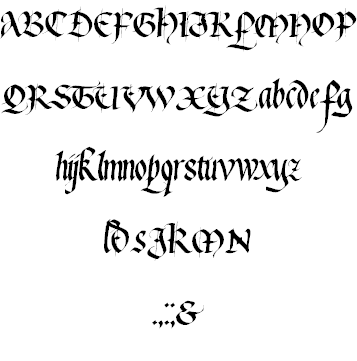 ABCDEFGHIJKLMNOP
QRSTUVWXYZabcdefg
hijklmnopqrstuvwxyz
&